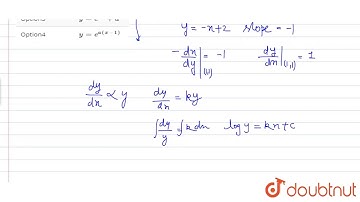 y = e + a
Option4 y = e^{a(x-1)}
y = -x+2 slope = -1
-dx/dy|(1,1) = -1 dy/dx|(1,1) = 1
dy/dx ∝ y dy/dx = ky
∫dy/y = ∫kdx log y = kx + c
doubtnut